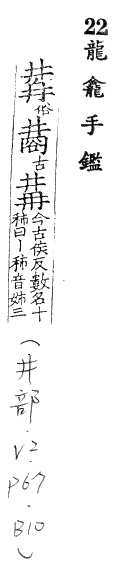 22 龍龕手鑑
俗 古 冓 今古侯反數名十
秭曰丨秭音姊三
(井部.V2.P67.B10)